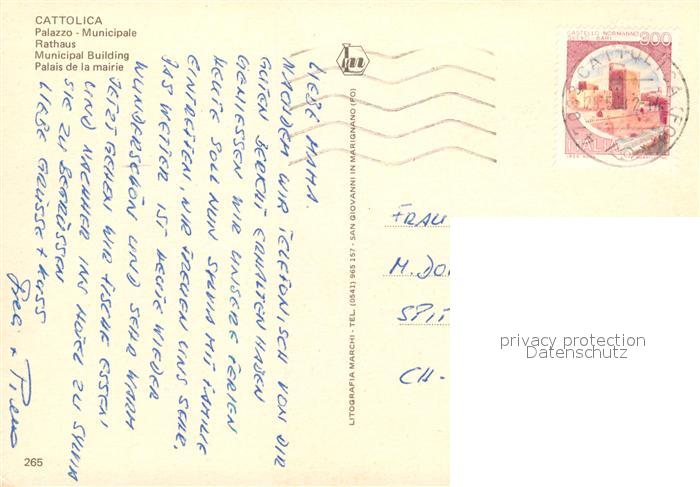 CATTOLICA
Palazzo - Municipale
Rathaus
Municipal Building
Palais de la mairie
LIEBE MAMA.
NACHDEM WIR TELEFONISCH VON DIR
GUTEN BERICHT ERHALTEN HABEN
GENIESSEN WIR UNSERE FERIEN
HEUTE SOLL NUN SYLVIA MIT FAMILIE
EINTREFFEN, WIR FREUEN UNS SEHR,
DAS WETTER IST HEUTE WIEDER
WUNDERSCHÖN UND SEHR WARM
JETZT GEHEN WIR FISCHE ESSEN
UND NACHHER INS HOTEL ZU SYLVIA
SIE ZU BEGRÜSSEN
LIEBE GRÜSSE + KUSS
265
LITOGRAFIA MARCHI - TEL. (0541) 965 157 - SAN GIOVANNI IN MARIGNANO (FO)
CASTELLO NORMANNO
SVEVO BARI
300
ITALIA
CATTOLICA (FO)
FRAU
M. DO
SPIT
CH-
privacy protection
Datenschutz